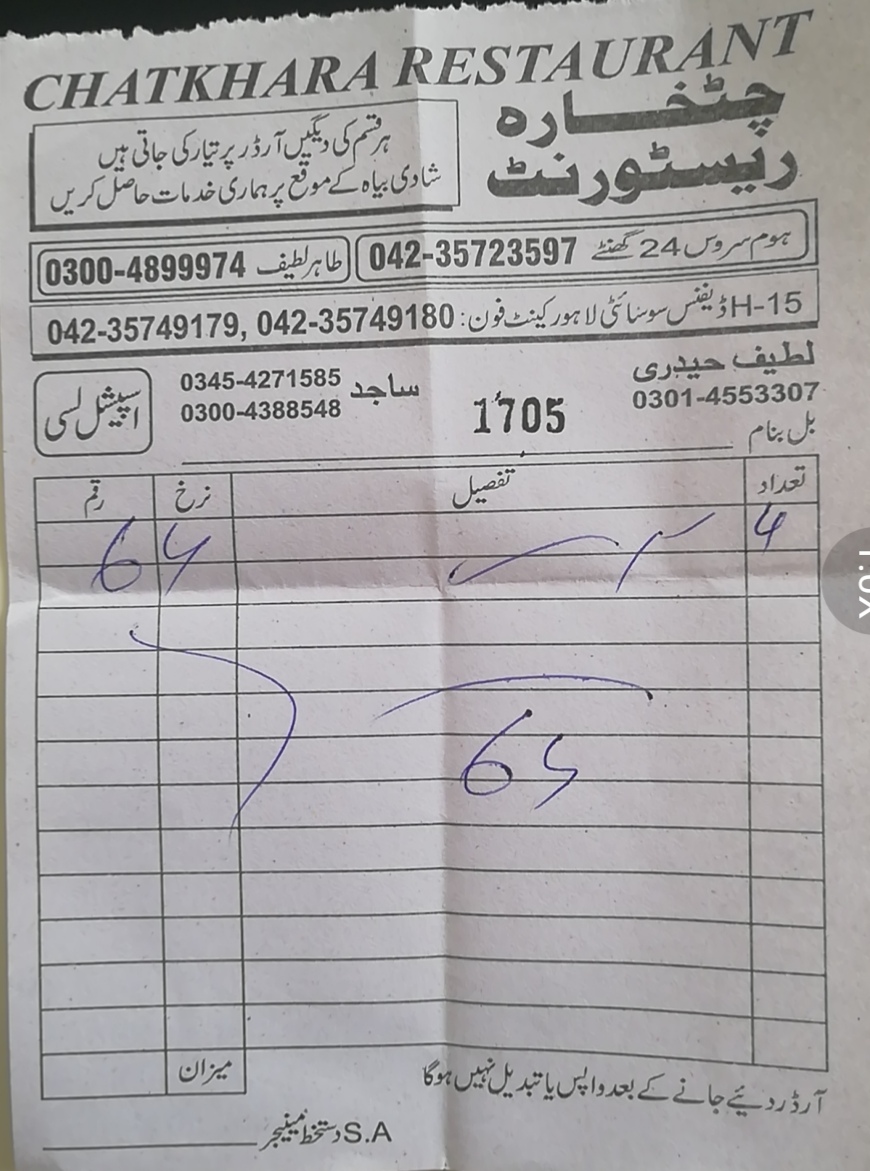 CHATKHARA RESTAURANT
چٹخارہ
ریسٹورنٹ
ہر قسم کی دیگیں آرڈر پر تیار کی جاتی ہیں
شادی بیاہ کے موقع پر ہماری خدمات حاصل کریں
ہوم سروس 24 گھنٹے 042-35723597
طاہر لطیف 0300-4899974
H-15 ڈیفنس سوسائٹی لاہور کینٹ فون: 042-35749179, 042-35749180
لطیف حیدری
0301-4553307
1705
ساجد 0345-4271585
0300-4388548
اسپیشل لسی
بل بنام
تعداد تفصیل نرخ رقم
4
میزان
آرڈر دیئے جانے کے بعد واپس یا تبدیل نہیں ہوگا
S.A دستخط مینیجر